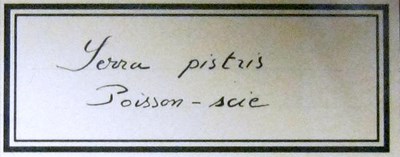 Serra pistris
Poisson-scie